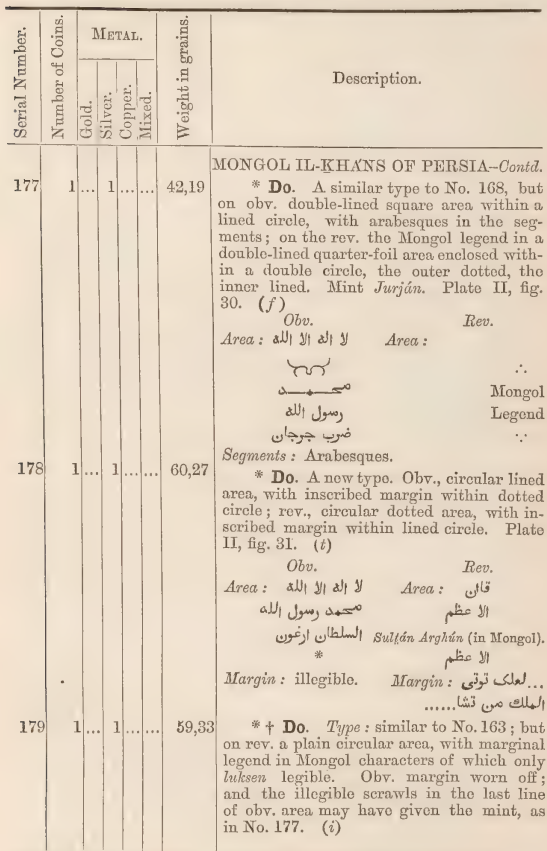 Serial Number.
Number of Coins.
METAL.
Gold.
Silver.
Copper.
Mixed.
Weight in grains.
Description.
MONGOL IL-KHÁNS OF PERSIA--Contd.
177 1 ... 1 ... ... 42,19 * Do. A similar type to No. 168, but
on obv. double-lined square area within a
lined circle, with arabesques in the seg-
ments; on the rev. the Mongol legend in a
double-lined quarter-foil area enclosed with-
in a double circle, the outer dotted, the
inner lined. Mint Jurján. Plate II, fig.
30. (f)
Obv. Rev.
Area : لا اله الا الله Area :
∴
محمد Mongol
رسول الله Legend
ضرب جرجان ∵
Segments : Arabesques.
178 1 ... 1 ... ... 60,27 * Do. A new type. Obv., circular lined
area, with inscribed margin within dotted
circle; rev., circular dotted area, with in-
scribed margin within lined circle. Plate
II, fig. 31. (t)
Obv. Rev.
Area : لا اله الا الله Area : قاان
محمد رسول الله الا عظم
السلطان ارغون Sulṭán Arghún (in Mongol).
* الا عظم
Margin : illegible. Margin : ...لعلک توتی
الملك من تشا......
179 1 ... 1 ... ... 59,33 * † Do. Type : similar to No. 163; but
on rev. a plain circular area, with marginal
legend in Mongol characters of which only
luksen legible. Obv. margin worn off;
and the illegible scrawls in the last line
of obv. area may have given the mint, as
in No. 177. (i)